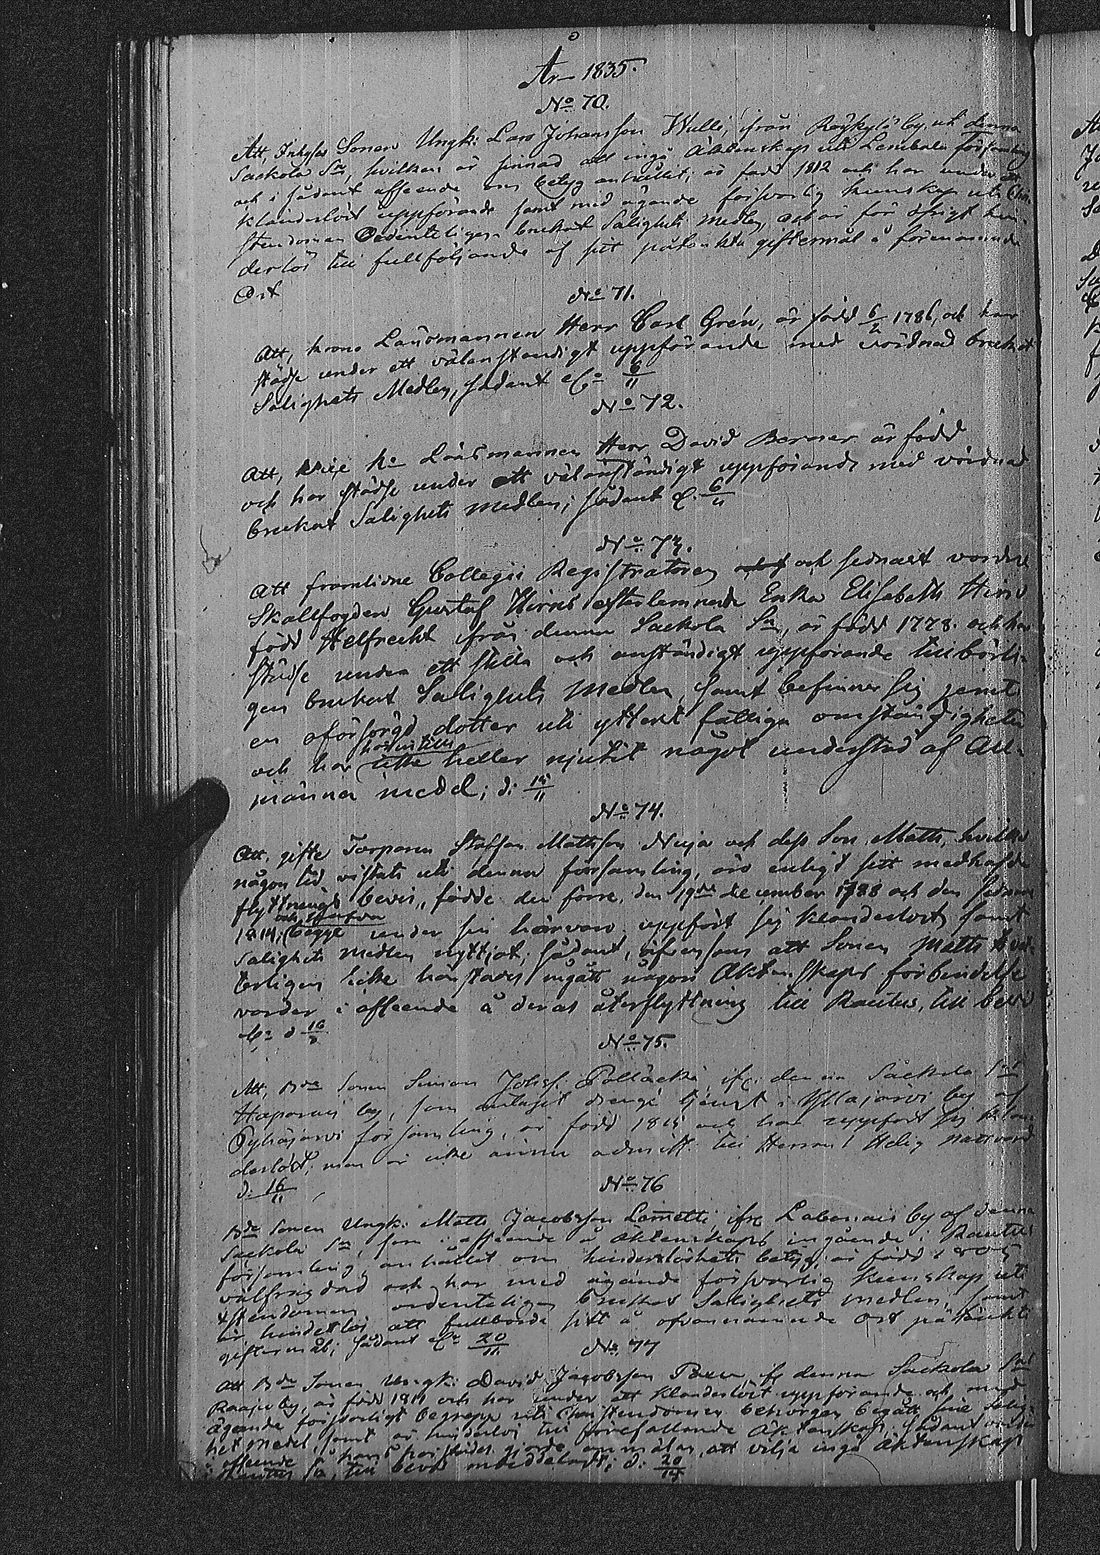 År 1835.
No 70.
Att, Inhyses Sonen Ungk: Lars Johansson Wulli, från Röykylä by, uti denna
Sackola Sn, hvilken är sinnad att ingå Äktenskap uti Lembala församling
och i sådant afseende om betyg anhållit; är född 1812 och har under ett
klanderlöst uppförande samt med ägande försvarlig kunskap uti Chri-
stendomen Ordenteligen brukat Salighets Medlen, och är för öfrigt hin-
derlös till fullföljande af sitt påtänkta giftermål å förenämnde
Ort
No 71.
Att, krono Länsmannen Herr Carl Grén, är född 6/2 1786, och har
städse under ett välanständigt uppförande med vördnad brukat
Salighets Medlen, sådant 6/11
No 72.
Att, Vice Ko Länsmannen Herr David Berner är född
och har städse under ett välanständigt uppförande med vördnad
brukat Salighets medlen; sådant 6/11
No 73.
Att framlidne Collegii Registratoren och sednast vordne
Skallfogden Gustaf Hirns efterlemnade Enka Elisabeth Hirn
född Helfrecht från denna Sackola Sn, är född 1778. och har
städse under ett stilla och anständigt uppförande tillbörli-
gen brukat Salighets Medlen, samt befinner sig jemte
en oförsörgd dotter uti ytterst fattiga omständigheter
och har icke heller njutit något understöd af All-
männa medel; d: 15/11
No 74.
Att, gifte Torparen Staffan Mattsson Nuija och dess Son Matts, hvilka
någon tid vistats uti denna församling, äro enligt sitt medhafde
flyttnings bevis, födde den förre, den 19de december 1788 och den sednare
1814, begge under sin härvaro uppfört sig klanderlöst samt
Salighets medlen nyttjat; sådant, äfvensom att Sonen Matts
icke härstädes ingått någon Äktenskaps förbindelse
varder i afseende å deras återflyttning till Rautus, till bevis
No 75.
Att, Bde Sonen Simon Johss: Pöllächä, ifr: denna Sackola Sn
Haparais by, som antagit drengs tjenst i Yllajärvi by af
Pyhäjärvi församling, är född 1815 och har uppfört sig klan-
derlöst; men är icke ännu admitt: till Herrans Helig nattvard
d: 16/11
No 76
Bde Sonen Ungk: Matts Jacobsson Lametti, ifr: Labonais by af denna
Sackola Sn, som i afseende å äktenskaps ingående i Rautus
församling, anhållit om hinderslöshets betyg, är född
välfrägdad och har med ägande försvarlig kunskap uti
Xstendomen ordenteligen brukat Salighets medlen, samt
är hinderlös att fullborda sitt å ofvannämnde Ort påtänkte
giftermål; sådant 20/11
No 77
Att Bde Sonen Ungk: David Jacobsson Paxu fr denna Sackola Sns
Raaju by, är född 1811 och har under ett klanderlöst uppförande och med
ägande försvarligt begrepp uti Christendomen behörigen begått sine Salig-
het medel, samt är hinderlös till förefallande Äktenskap, sådant
afseende å hans härstädes gjorde anmälan, att vilja ingå äktenskap
Rautus Sn, till bevis meddelast; d: 20/11